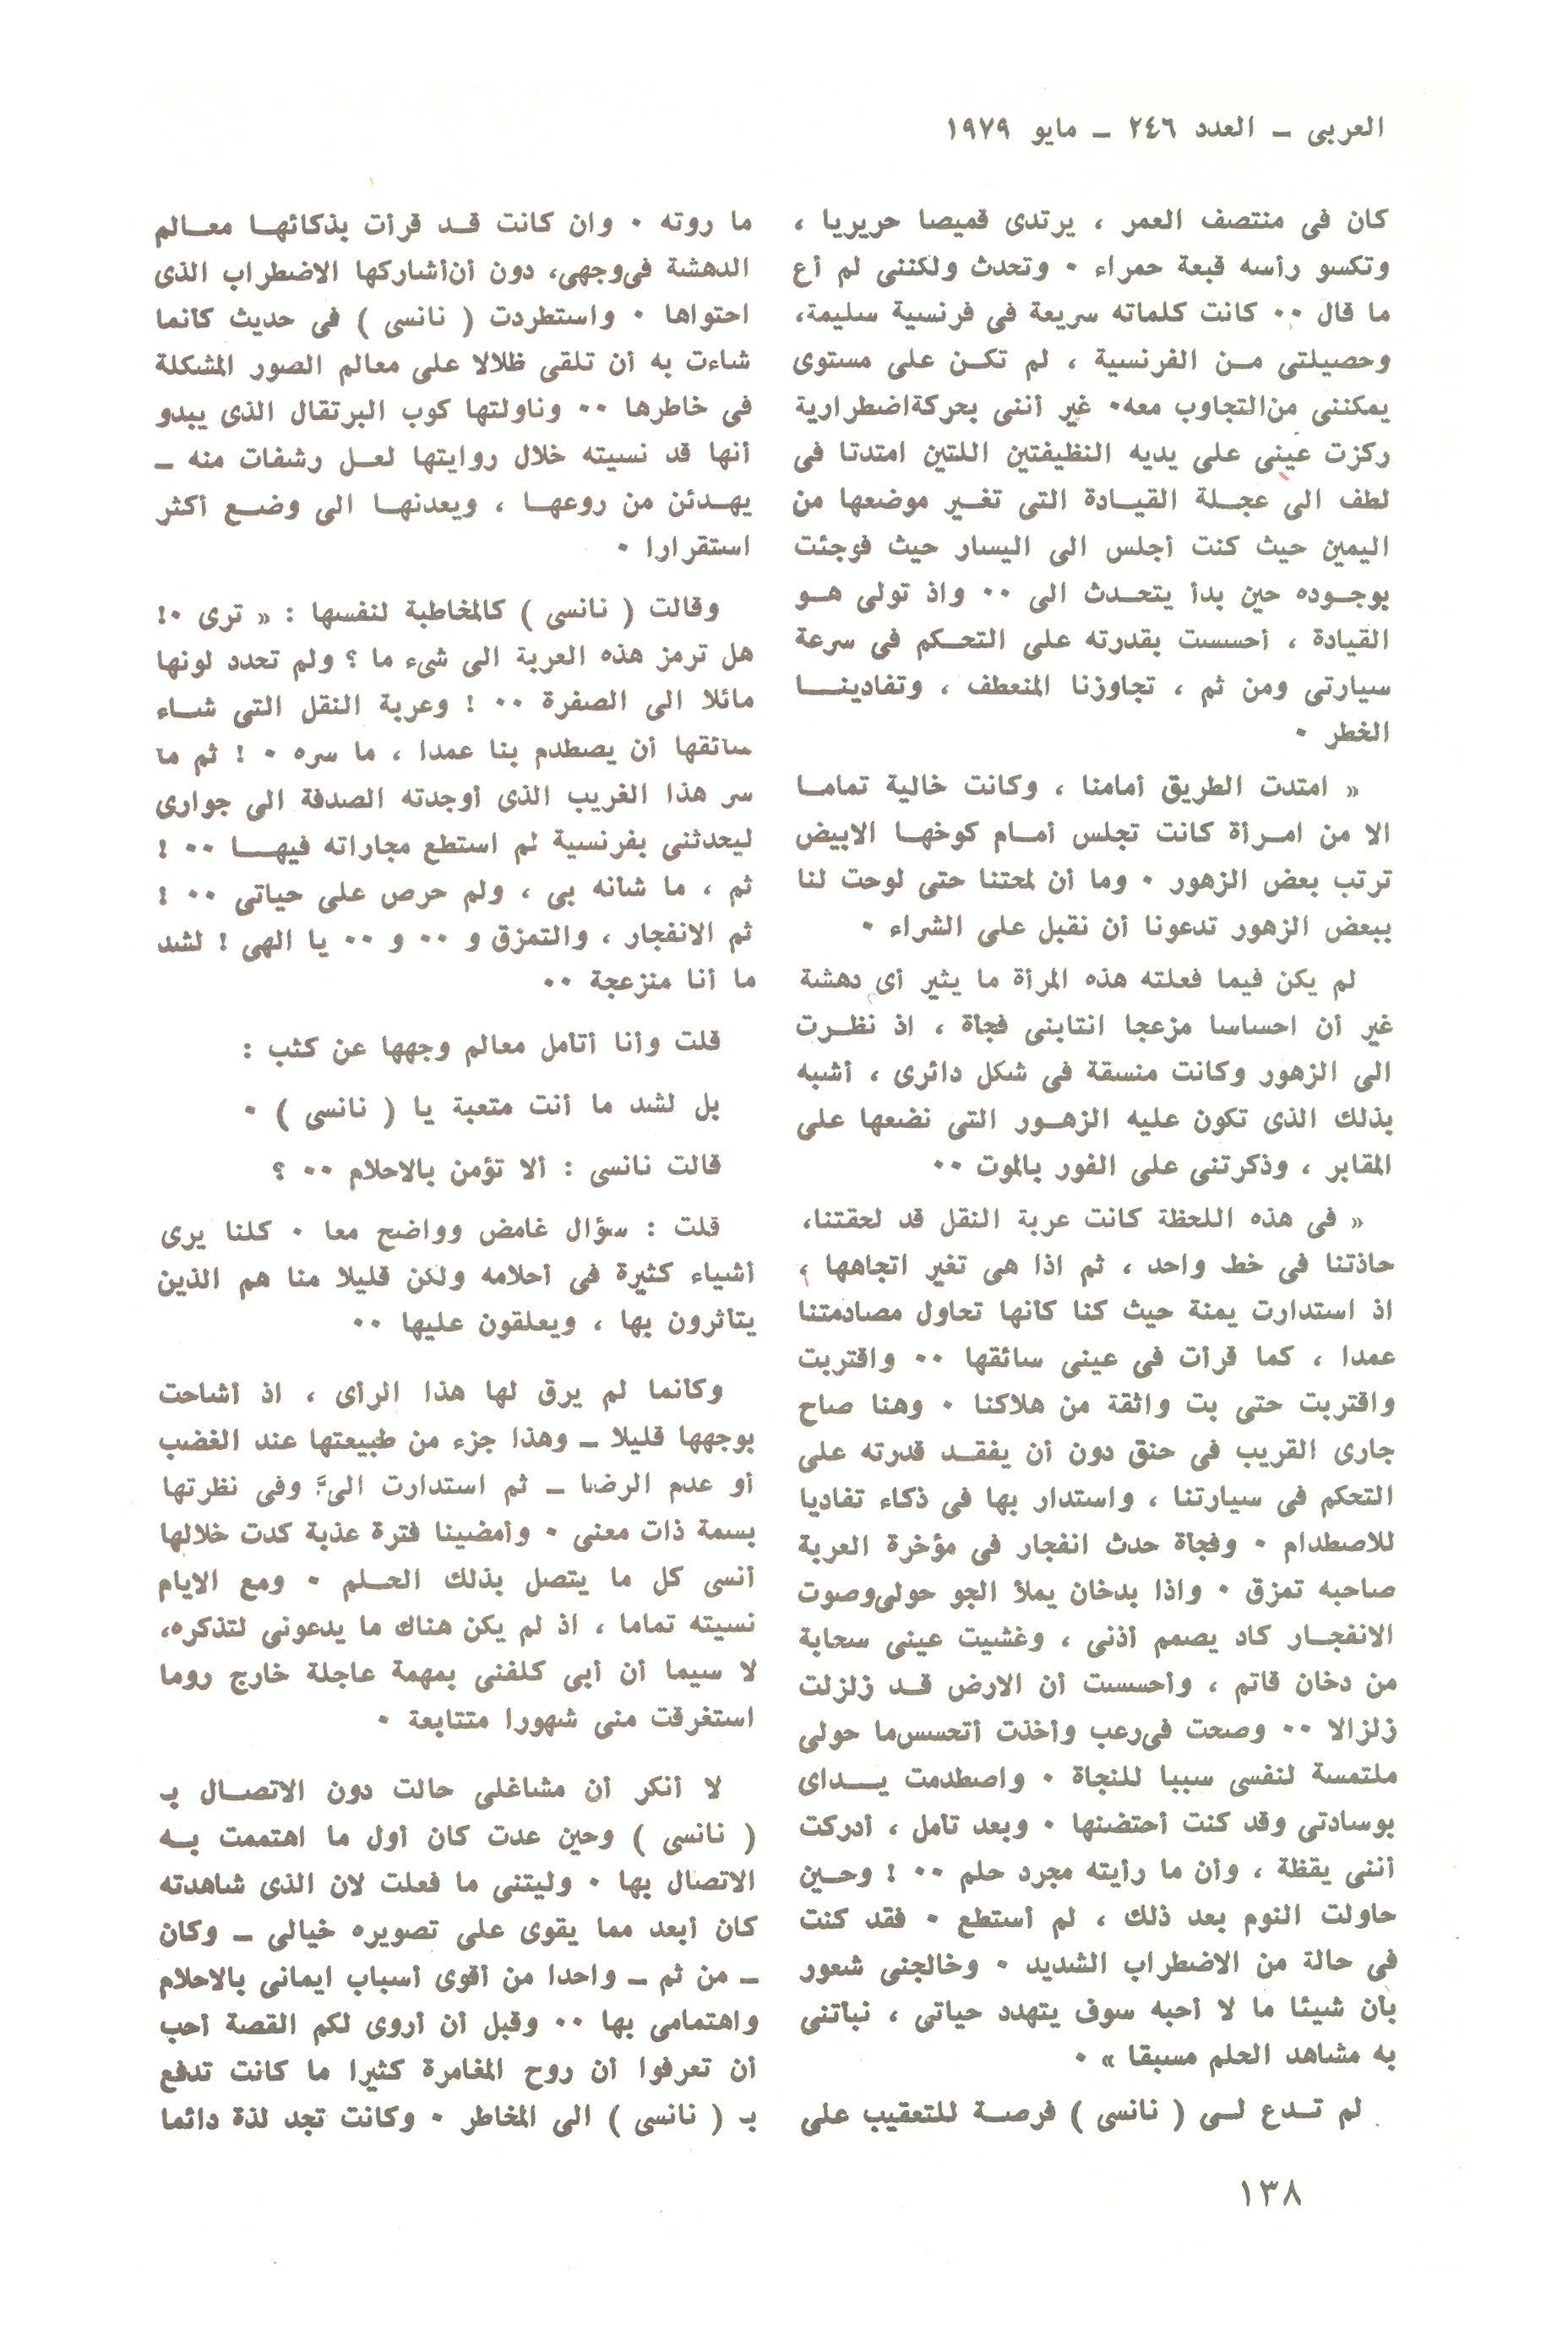 العربى – العدد ٢٤٦ – مايو ١٩٧٩
كان فى منتصف العمر ، يرتدى قميصا حريريا ،
وتكسو رأسه قبعة حمراء ٠ وتحدث ولكننى لم أع
ما قال ٠٠ كانت كلماته سريعة فى فرنسية سليمة،
وحصيلتى مـن الفرنسية ، لم تكـن على مستوى
يمكننى من التجاوب معه٠ غير أننى بحركة اضطرارية
ركزت عينى على يديه النظيفتين اللتين امتدتا فى
لطف الى عجـلة القيـادة التى تغـير موضعها من
اليمين حيث كنت أجلس الى اليسار حيث فوجئت
بوجـوده حين بدأ يتحـدث الى ٠٠ واذ تولى هـو
القيادة ، أحسست بقدرته على التحـكم فى سرعة
سيارتى ومن ثم ، تجاوزنا المنعطف ، وتفادينـا
الخطر ٠
« امتدت الطريق أمامنا ، وكانت خالية تماما
الا من امـرأة كانت تجلس أمـام كوخهـا الابيض
ترتب بعض الزهور ٠ وما أن لمحتنا حتى لوحت لنا
ببعض الزهور تدعونا أن نقبل على الشراء ٠
لم يكن فيما فعلته هذه المرأة ما يثير أى دهشة
غير أن احساسا مزعجا انتابنى فجأة ، اذ نظـرت
الى الزهور وكانت منسقة فى شكل دائرى ، أشبه
بذلك الذى تكون عليه الزهـور التى نضعها على
المقابر ، وذكرتنى على الفور بالموت ٠٠
« فى هذه اللحظة كانت عربة النقل قد لحقتنا،
حاذتنا فى خط واحد ، ثم اذا هى تغير اتجاهها ،
اذ استدارت يمنة حيث كنا كأنها تحاول مصادمتنا
عمدا ، كما قرأت فى عينى سائقها ٠٠ واقتربت
واقتربت حتى بت واثقة من هلاكنا ٠ وهنا صاح
جارى القريب فى حنق دون أن يفقـد قدرته على
التحكم فى سيارتنا ، واستدار بها فى ذكاء تفاديا
للاصطدام ٠ وفجأة حدث انفجار فى مؤخرة العربة
صاحبه تمزق ٠ واذا بدخان يملأ الجو حولى وصوت
الانفجـار كاد يصمم أذنى ، وغشيت عينى سحابة
من دخان قاتم ، وأحسست أن الارض قـد زلزلت
زلزالا ٠٠ وصحت فى رعب وأخذت أتحسس ما حولى
ملتمسة لنفسى سببا للنجاة ٠ واصطدمت يـداى
بوسادتى وقد كنت أحتضنها ٠ وبعد تأمل ، أدركت
أننى يقظة ، وأن ما رأيته مجرد حلم ٠٠ ! وحـين
حاولت النوم بعد ذلك ، لم أستطع ٠ فقد كنت
فى حالة من الاضطراب الشديد ٠ وخالجنى شعور
بأن شيئا ما لا أحبه سوف يتهدد حياتى ، نبأتنى
به مشاهد الحلم مسبقا » ٠
لم تـدع لـى ( نانسى ) فرصـة للتعقيب على
ما روته ٠ وان كانت قـد قرأت بذكائهـا معـالم
الدهشة فى وجهى، دون أن أشاركها الاضطراب الذى
احتواها ٠ واستطردت ( نانسى ) فى حديث كأنما
شاءت به أن تلقى ظلالا على معالم الصور المشكلة
فى خاطرها ٠٠ وناولتها كوب البرتقال الذى يبدو
أنها قد نسيته خلال روايتها لعـل رشفات منه –
يهـدئن من روعهـا ، ويعدنهـا الى وضـع أكثر
استقرارا ٠
وقالت ( نانسى ) كالمخاطبة لنفسها : « ترى ٠!
هل ترمز هذه العربة الى شىء ما ؟ ولم تحدد لونها
مائلا الى الصفرة ٠٠ ! وعربة النقل التى شـاء
سائقها أن يصطدم بنا عمدا ، ما سره ٠ ! ثم ما
سر هذا الغريب الذى أوجدته الصدفة الى جوارى
ليحدثنى بفرنسية لم استطع مجاراته فيهـا ٠٠ !
ثم ، ما شأنه بى ، ولم حرص على حياتى ٠٠ !
ثم الانفجار ، والتمزق و ٠٠ و ٠٠ يا الهى ! لشد
ما أنا منزعجة ٠٠
قلت وأنا أتأمل معالم وجهها عن كثب :
بل لشد ما أنت متعبة يا ( نانسى ) ٠
قالت نانسى : ألا تؤمن بالاحلام ٠٠ ؟
قلت : سؤال غامض وواضح معا ٠ كلنا يرى
أشياء كثيرة فى أحلامه ولكن قليلا منا هم الذين
يتأثرون بها ، ويعلقون عليها ٠٠
وكأنما لم يرق لها هذا الرأى ، اذ أشاحت
بوجهها قليلا – وهذا جزء من طبيعتها عند الغضب
أو عدم الرضا – ثم استدارت الىَّ وفى نظرتها
بسمة ذات معنى ٠ وأمضينا فترة عذبة كدت خلالها
أنسى كل ما يتصل بذلك الحـلم ٠ ومع الايام
نسيته تماما ، اذ لم يكن هناك ما يدعونى لتذكره،
لا سيما أن أبى كلفنى بمهمة عاجلة خارج روما
استغرقت منى شهورا متتابعة ٠
لا أنكر أن مشاغلى حالت دون الاتصـال بـ
( نانسى ) وحين عدت كان أول ما اهتممت بـه
الاتصال بها ٠ وليتنى ما فعلت لان الذى شاهدته
كان أبعد مما يقوى على تصويره خيالى – وكان
– من ثم – واحدا من أقوى أسباب ايمانى بالاحلام
واهتمامى بها ٠٠ وقبل أن أروى لكم القصة أحب
أن تعرفوا أن روح المغامرة كثيرا ما كانت تدفع
بـ ( نانسى ) الى المخاطر ٠ وكانت تجد لذة دائما
١٣٨